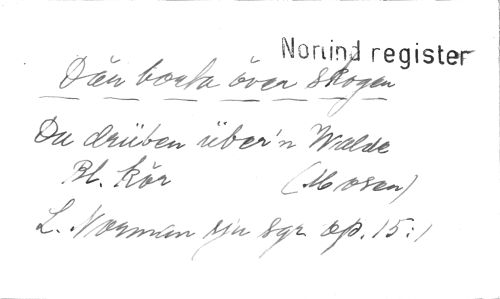 Norlind register
Dän borta över skogen
Da drüben über'n Walde
Bl. kör (Mosen)
L. Norman sju sgr op. 15:1